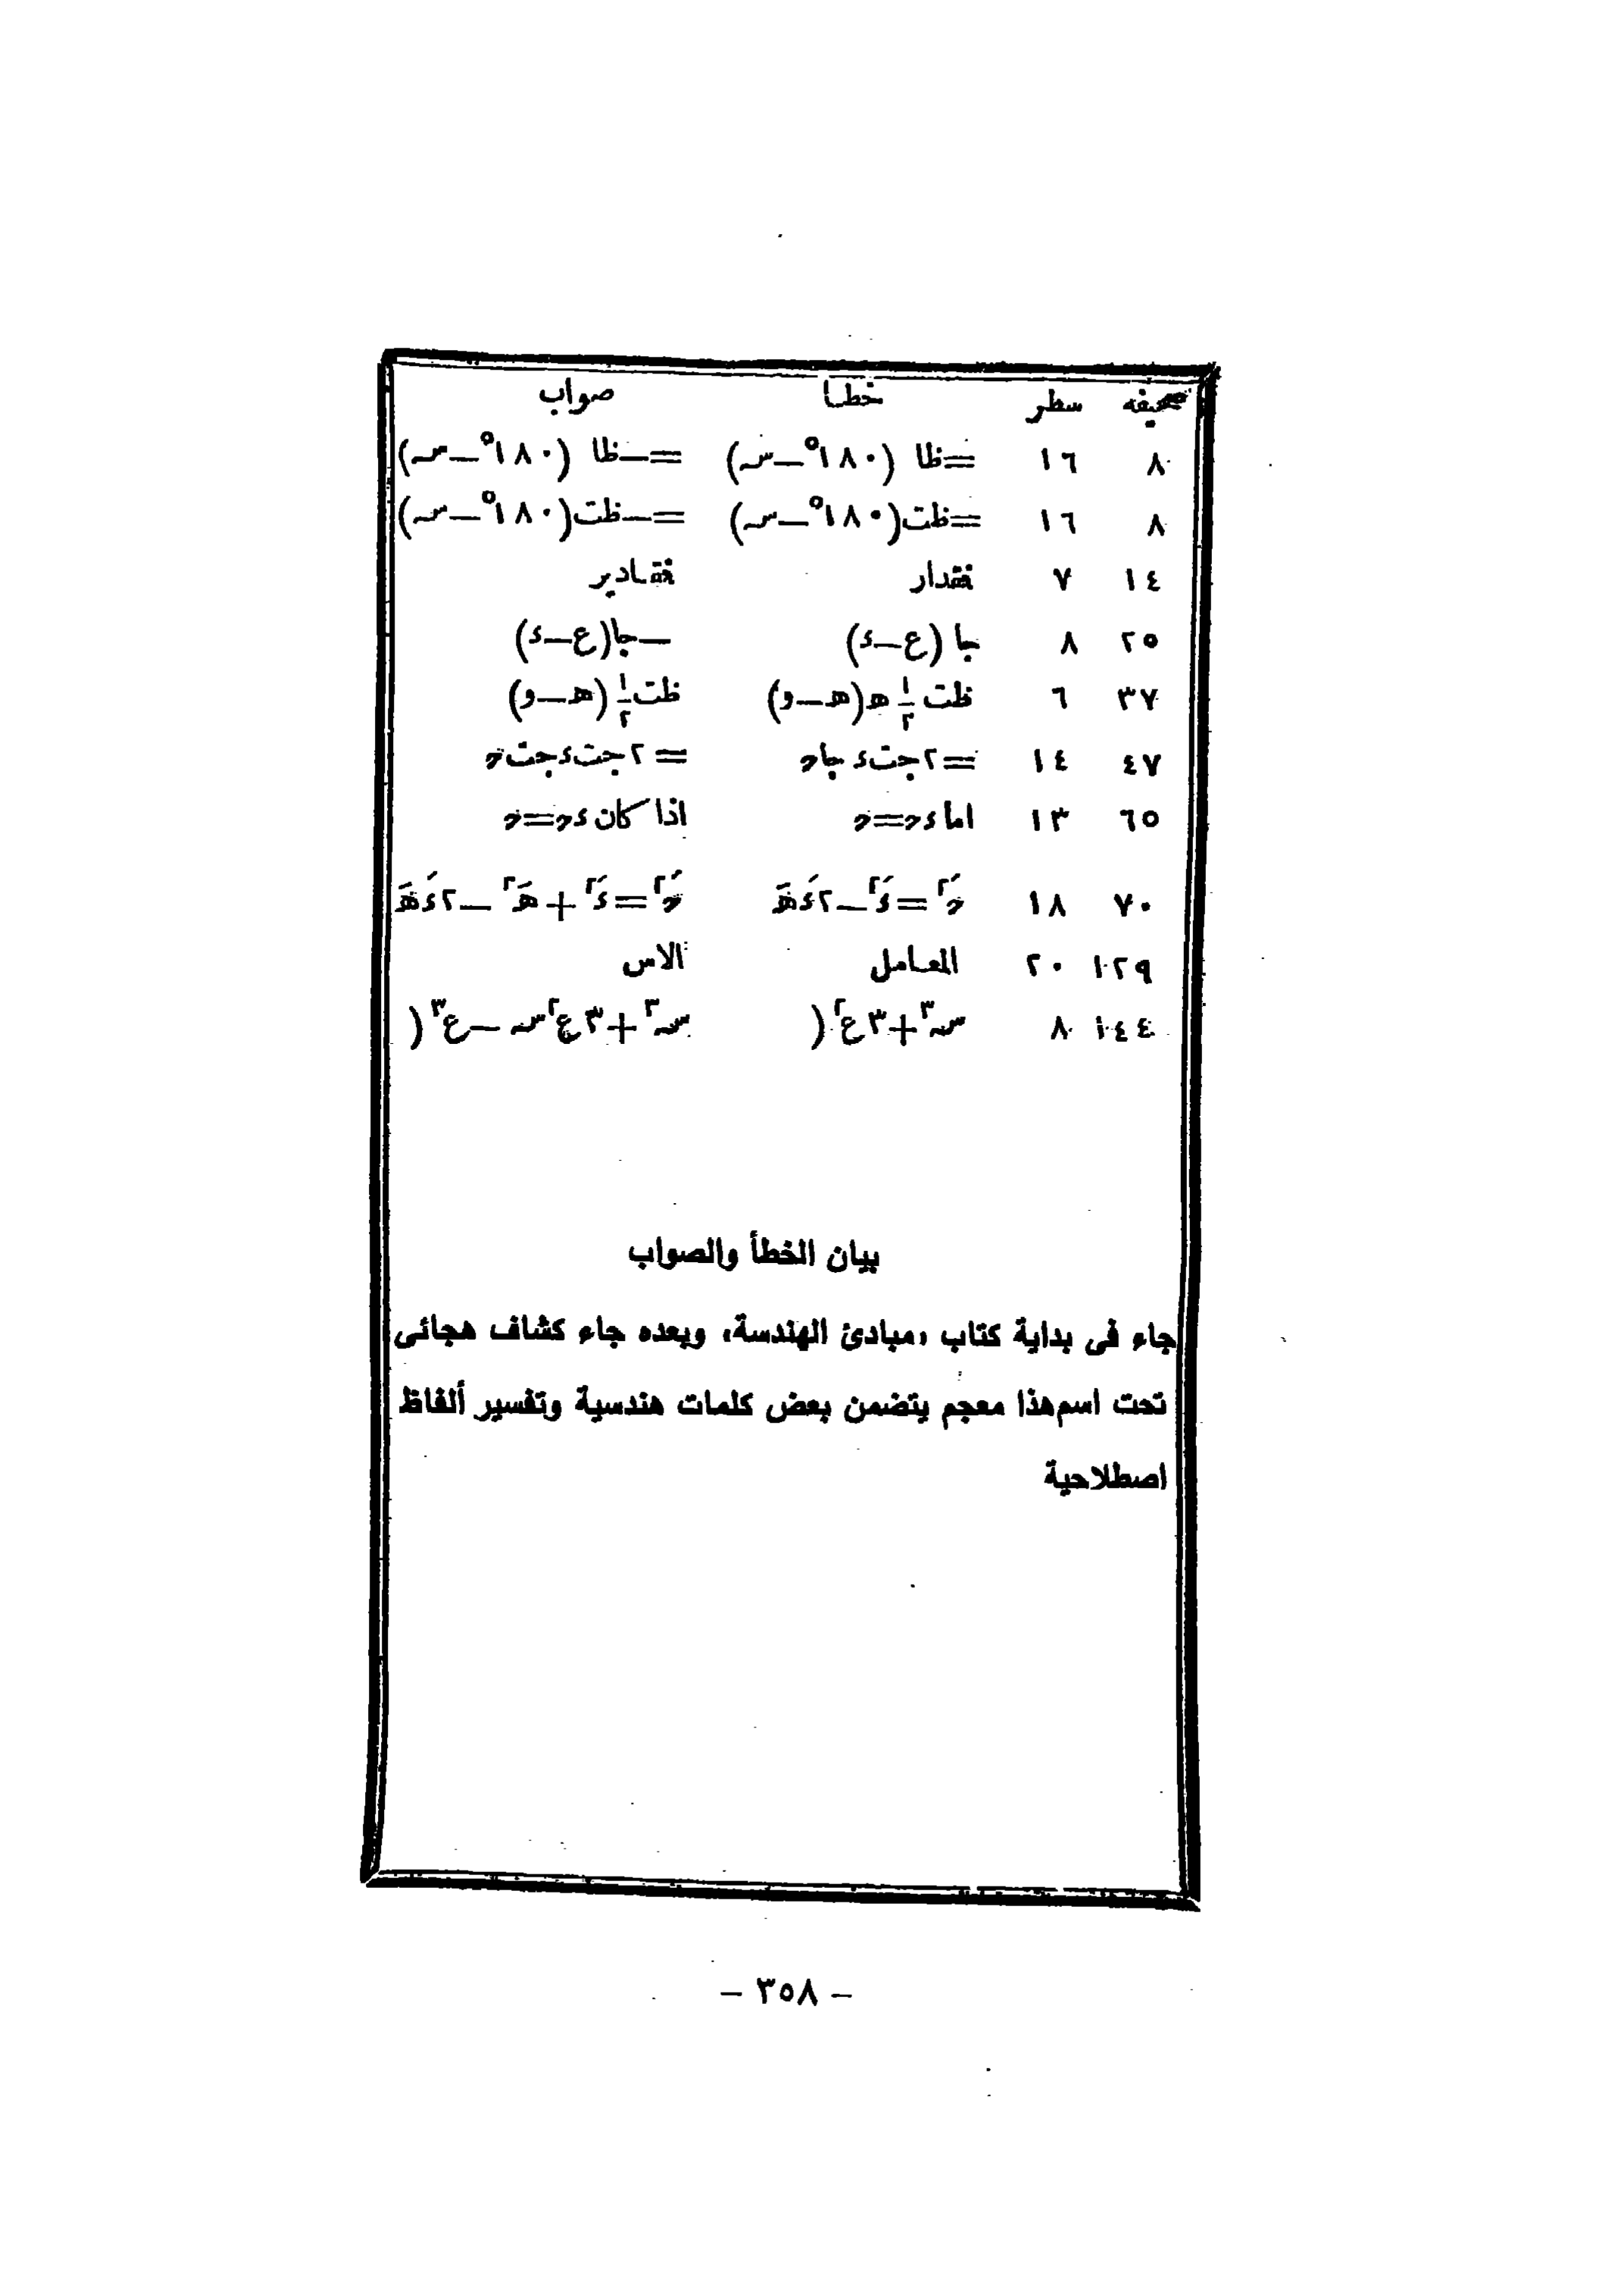 صحيفه سطر خطا صواب
٨ ١٦ =ظا (١٨٠°-س) =-ظا (١٨٠°-س)
٨ ١٦ =ظت(١٨٠°-س) =-ظت(١٨٠°-س)
١٤ ٧ فقدار فقادير
٢٥ ٨ جا (ع-ء) -جا(ع-ء)
٣٧ ٦ ظت ١/٢ ه(ه-و) ظت ١/٢ (ه-و)
٤٧ ١٤ =٢جتء جاح =٢جتءجتح
٦٥ ١٣ اماءح=ح اذا كان ءح=ح
٧٠ ١٨ حَ٢=ءَ٢-٢ءَهَ حَ٢=ءَ٢+هَ٢-٢ءَهَ
١٢٩ ٢٠ المعامل الاس
١٤٤ ٨ س٣+٣ع٢( س٣+٣ع٢س-ع٣(
بيان الخطأ والصواب
جاء فى بداية كتاب «مبادئ الهندسة» وبعده جاء كشاف هجائى
تحت اسم هذا معجم يتضمن بعض كلمات هندسية وتفسير ألفاظ
اصطلاحية
- ٣٥٨ -